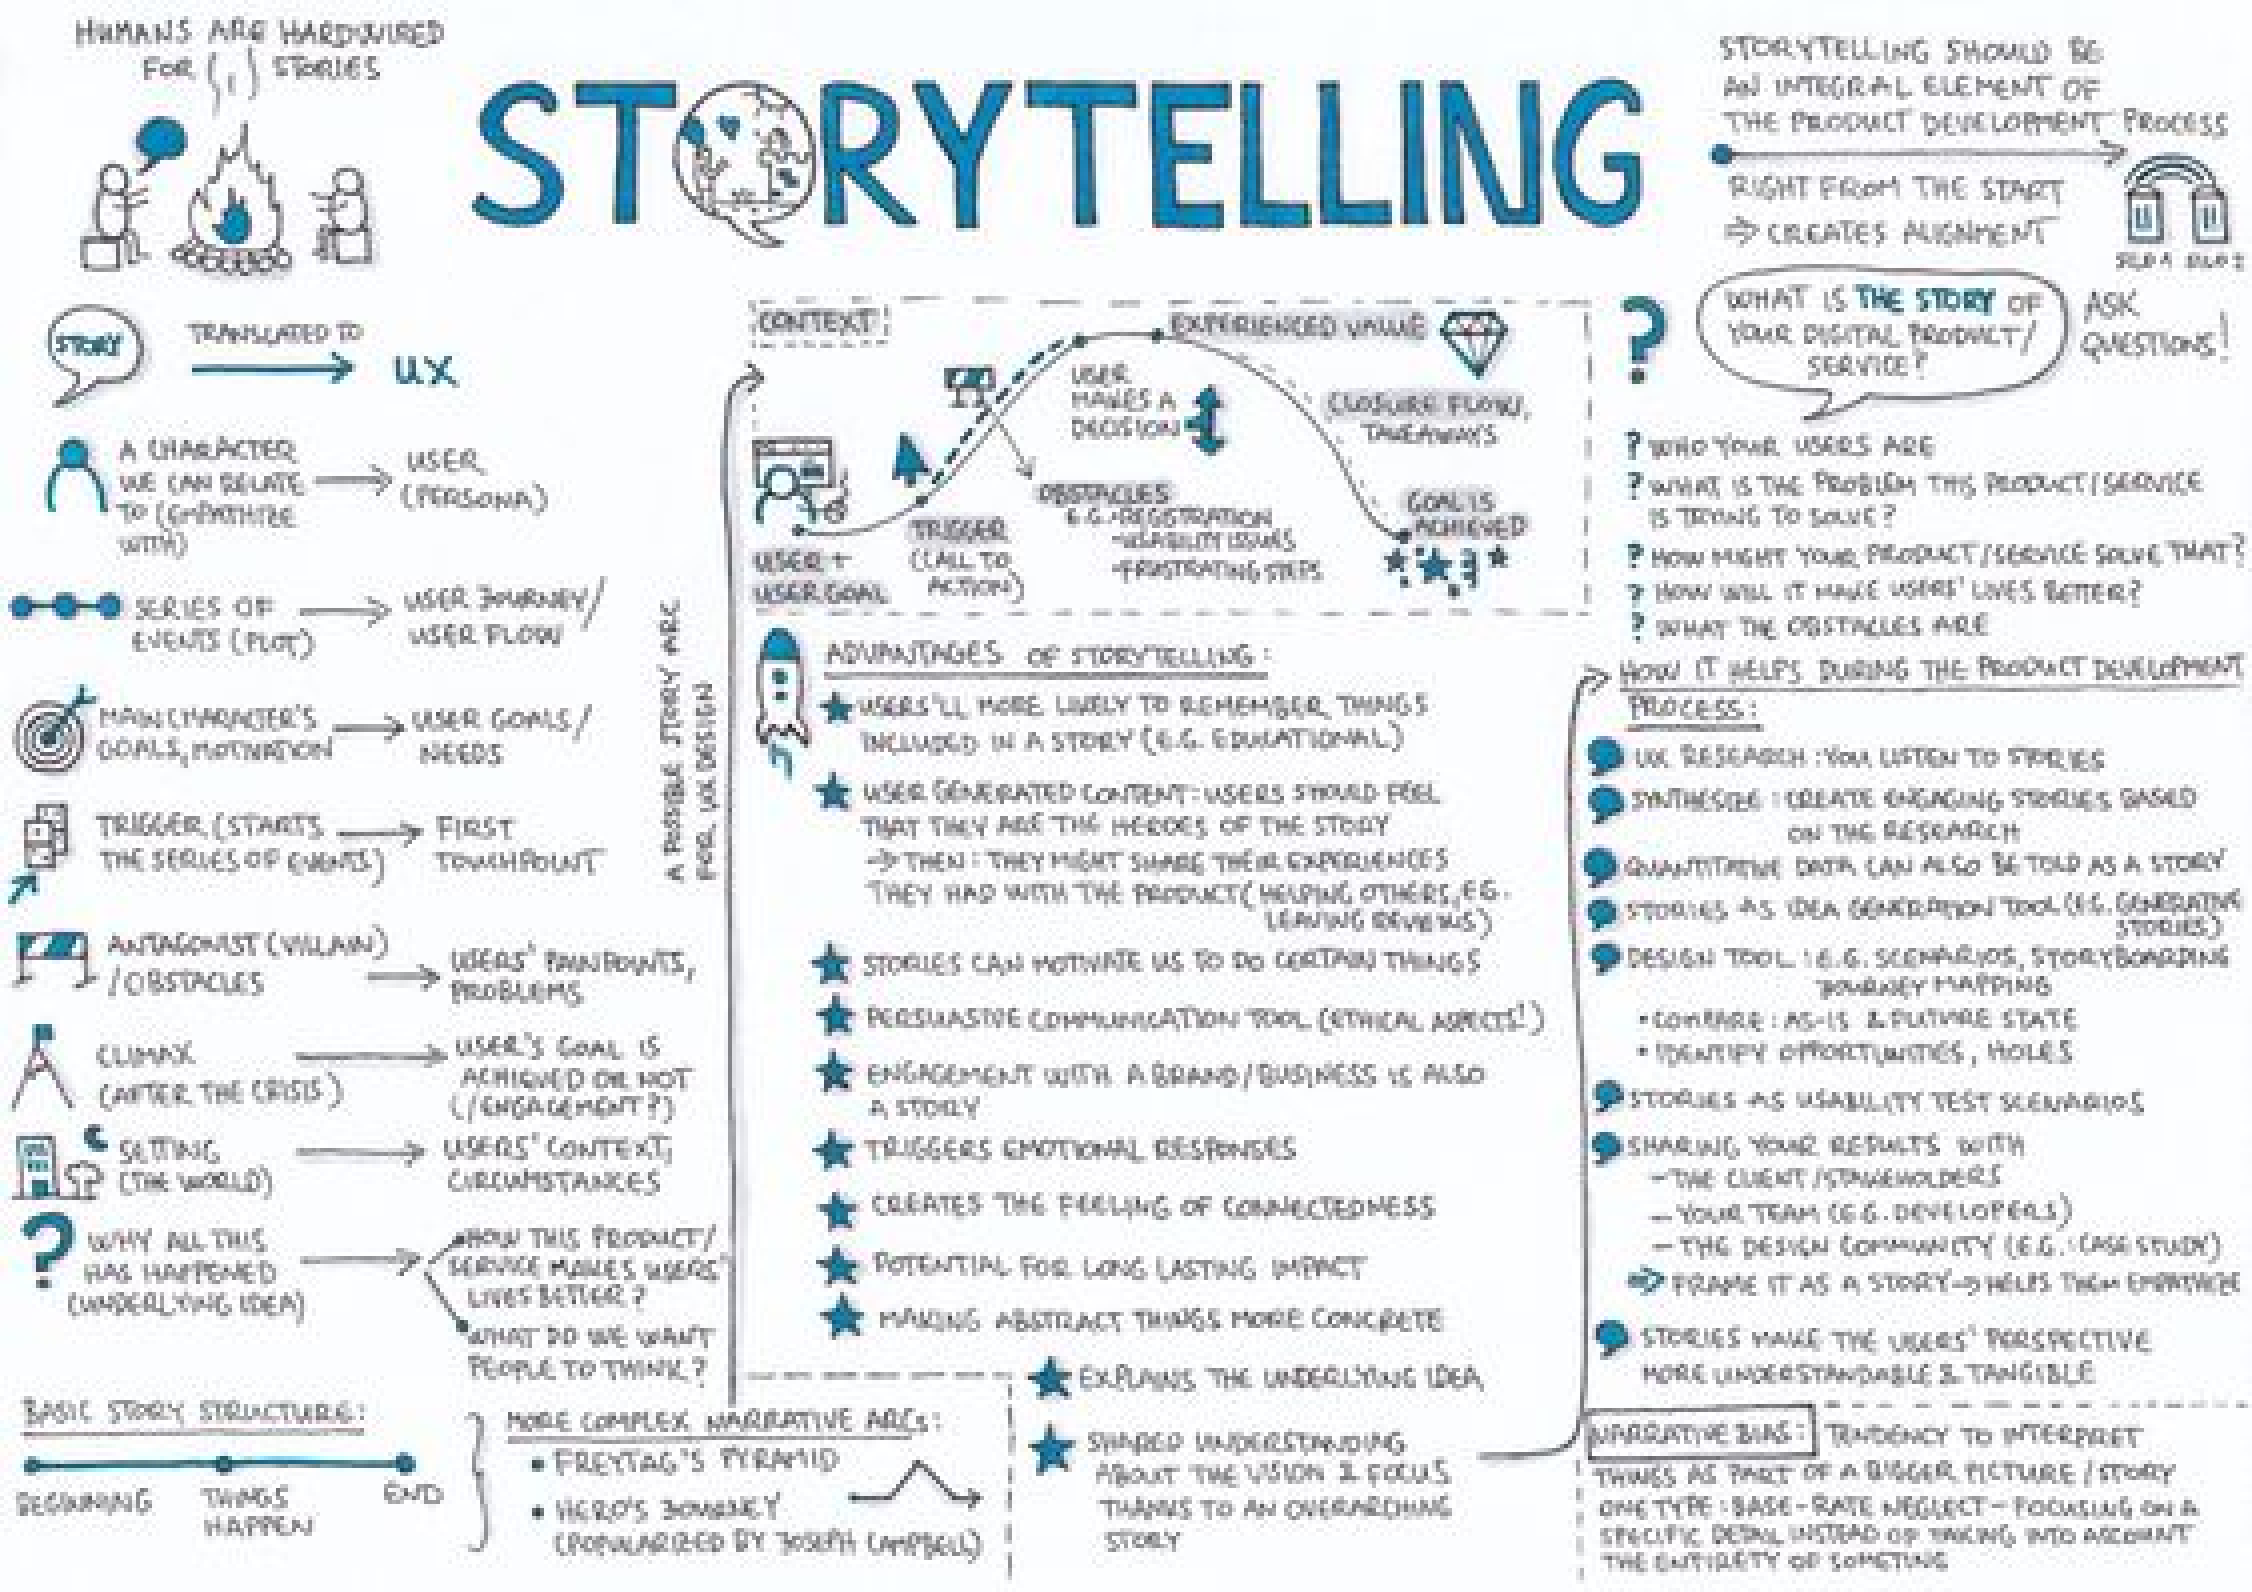 HUMANS ARE HARDWIRED
FOR STORIES
STORYTELLING
STORYTELLING SHOULD BE
AN INTEGRAL ELEMENT OF
THE PRODUCT DEVELOPMENT PROCESS
RIGHT FROM THE START
⇒ CREATES ALIGNMENT
SILO 1 SILO 2
STORY
TRANSLATED TO
UX
A CHARACTER
WE CAN RELATE
TO (EMPATHIZE
WITH)
USER
(PERSONA)
SERIES OF
EVENTS (PLOT)
USER JOURNEY/
USER FLOW
MAIN CHARACTER'S
GOALS, MOTIVATION
USER GOALS/
NEEDS
TRIGGER (STARTS
THE SERIES OF EVENTS)
FIRST
TOUCHPOINT
ANTAGONIST (VILLAIN)
/OBSTACLES
USERS' PAINPOINTS,
PROBLEMS
CLIMAX
(AFTER THE CRISIS)
USER'S GOAL IS
ACHIEVED OR NOT
(/ENGAGEMENT?)
SETTING
(THE WORLD)
USERS' CONTEXT,
CIRCUMSTANCES
?
WHY ALL THIS
HAS HAPPENED
(UNDERLYING IDEA)
HOW THIS PRODUCT/
SERVICE MAKES USERS'
LIVES BETTER?
WHAT DO WE WANT
PEOPLE TO THINK?
BASIC STORY STRUCTURE:
BEGINNING
THINGS
HAPPEN
END
MORE COMPLEX NARRATIVE ARCS:
• FREYTAG'S PYRAMID
• HERO'S JOURNEY
(POPULARIZED BY JOSEPH CAMPBELL)
A POSSIBLE STORY ARC
FOR UX DESIGN
CONTEXT:
USER +
USER GOAL
TRIGGER
(CALL TO
ACTION)
OBSTACLES
E.G.-REGISTRATION
-USABILITY ISSUES
-FRUSTRATING STEPS
USER
MAKES A
DECISION
EXPERIENCED VALUE
CLOSURE FLOW,
TAKEAWAYS
GOAL IS
ACHIEVED
ADVANTAGES OF STORYTELLING:
USERS'LL MORE LIKELY TO REMEMBER THINGS
INCLUDED IN A STORY (E.G. EDUCATIONAL)
USER GENERATED CONTENT: USERS SHOULD FEEL
THAT THEY ARE THE HEROES OF THE STORY
→ THEN: THEY MIGHT SHARE THEIR EXPERIENCES
THEY HAD WITH THE PRODUCT (HELPING OTHERS, E.G.
LEAVING REVIEWS)
STORIES CAN MOTIVATE US TO DO CERTAIN THINGS
PERSUASIVE COMMUNICATION TOOL (ETHICAL ASPECTS!)
ENGAGEMENT WITH A BRAND/BUSINESS IS ALSO
A STORY
TRIGGERS EMOTIONAL RESPONSES
CREATES THE FEELING OF CONNECTEDNESS
POTENTIAL FOR LONG LASTING IMPACT
MAKING ABSTRACT THINGS MORE CONCRETE
EXPLAINS THE UNDERLYING IDEA
SHARED UNDERSTANDING
ABOUT THE VISION & FOCUS
THANKS TO AN OVERARCHING
STORY
?
WHAT IS THE STORY OF
YOUR DIGITAL PRODUCT/
SERVICE?
ASK
QUESTIONS!
? WHO YOUR USERS ARE
? WHAT IS THE PROBLEM THIS PRODUCT/SERVICE
IS TRYING TO SOLVE?
? HOW MIGHT YOUR PRODUCT/SERVICE SOLVE THAT?
? HOW WILL IT MAKE USERS' LIVES BETTER?
? WHAT THE OBSTACLES ARE
HOW IT HELPS DURING THE PRODUCT DEVELOPMENT
PROCESS:
UX RESEARCH: YOU LISTEN TO STORIES
SYNTHESIZE: CREATE ENGAGING STORIES BASED
ON THE RESEARCH
QUANTITATIVE DATA CAN ALSO BE TOLD AS A STORY
STORIES AS IDEA GENERATION TOOL (E.G. GENERATIVE
STORIES)
DESIGN TOOL: E.G. SCENARIOS, STORYBOARDING
JOURNEY MAPPING
• COMPARE: AS-IS & FUTURE STATE
• IDENTIFY OPPORTUNITIES, HOLES
STORIES AS USABILITY TEST SCENARIOS
SHARING YOUR RESULTS WITH
- THE CLIENT/STAKEHOLDERS
- YOUR TEAM (E.G. DEVELOPERS)
- THE DESIGN COMMUNITY (E.G.: CASE STUDY)
⇒ FRAME IT AS A STORY → HELPS THEM EMPATHIZE
STORIES MAKE THE USERS' PERSPECTIVE
MORE UNDERSTANDABLE & TANGIBLE
NARRATIVE BIAS: TENDENCY TO INTERPRET
THINGS AS PART OF A BIGGER PICTURE / STORY
ONE TYPE: BASE-RATE NEGLECT - FOCUSING ON A
SPECIFIC DETAIL INSTEAD OF TAKING INTO ACCOUNT
THE ENTIRETY OF SOMETING